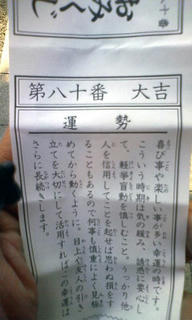 おみくじ
第八十番　大吉
運勢
喜び事や楽しい事が多い幸運の時です。
こういう時期は気の緩み、誘惑に要心し
て、軽挙盲動を慎しむこと。うっかり他
人を信用してことを起せば思わぬ損をす
ることもあるので何事も慎重によく見極
めてから動くように。目上や友人の引き
立てを大切にして活用すればこの幸運は
さらに長続きします。